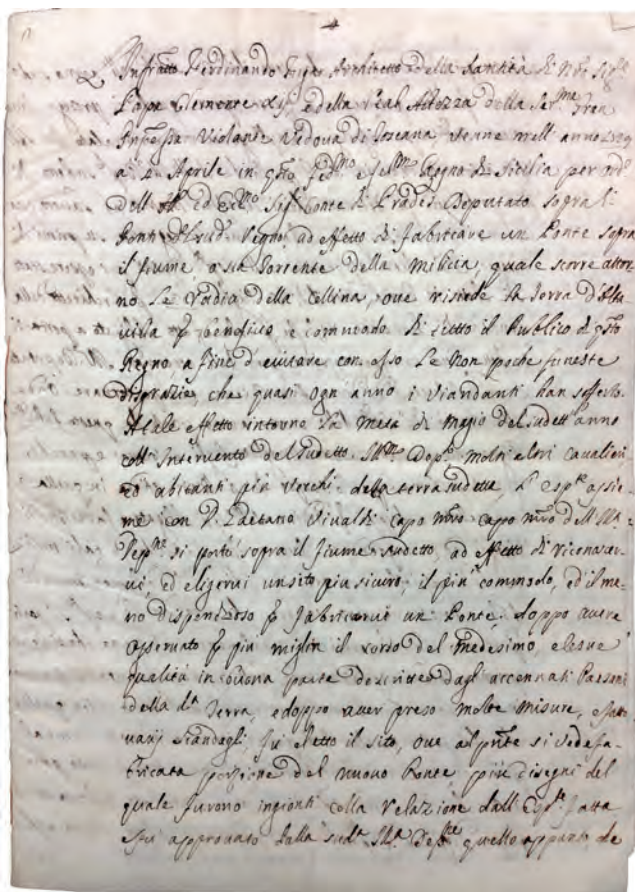 Infratto Ferdinando Fuga Architetto della Santità di Nro Sigre
Papa Clemente XII, e della Real Altezza della Serma Gran
Prinpessa Violante Vedova di Toscana venne nell'anno 1729
a Aprile in qsto fedmo e felmo Regno di Sicilia per ordne
dell' Ill. ed Eccmo Sigr Conte di Prades Deputato sopra li
Ponti d Regno, ad effetto di fabricare un Ponte sopra
il fiume, o sia Torrente della Milicia, quale scorre attor-
no le Vadia della Collina, ove risiede la Terra d'Alta
villa p benefico, e commodo di tutto il Publico di qsto
Regno a fine d'evitare con esso le non poche funeste
disgrazie, che quasi ogn anno i viandanti han sofferto.
A tale effetto intorno la metà di Magio del sudetto anno
coll'Intervento del sudetto Illmo Depto molti altri cavalieri
ed abitanti più vecchi della terra sudetta, l'Espte assie-
me con D. Gaetano Vivaldi capo mro capo mro dell'Illma
Depne si portò sopra il fiume sudetto, ad effetto di riconoscer-
vi, ed eligervi un sito più sicuro, il più commodo, ed il me-
no dispendioso p fabricarvi un Ponte; doppo avere
osservato p più miglia il corso del medesimo, e le sue
qualità in buona parte descritte dagli accennati Paesani
della da Terra, e doppo aver preso molte misure, e fatto
varij scandagli, fù eletto il sito, ove al pnte si vede fa-
bricata porzione del nuovo Ponte, più disegni del
quale furono ingionti colla relazione dall'Espte fatta
e fù approvato dalla suda Illma Depne quello apparato de